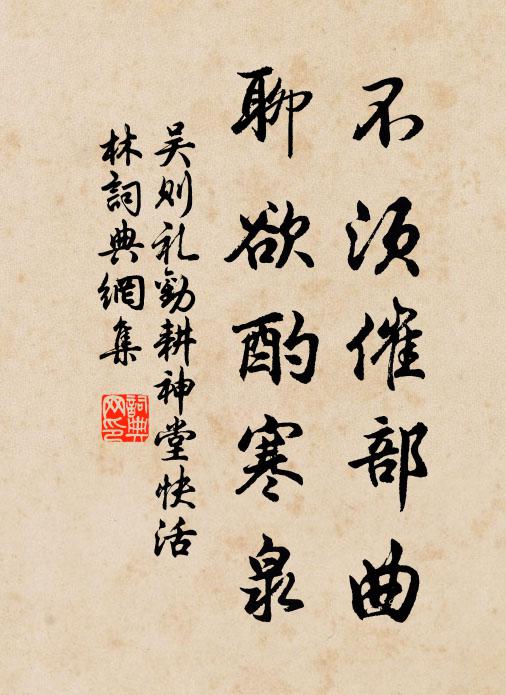 不须催部曲
聊欲酌寒泉
吴则礼劝耕神堂快活
林词典網集
詞典
网印